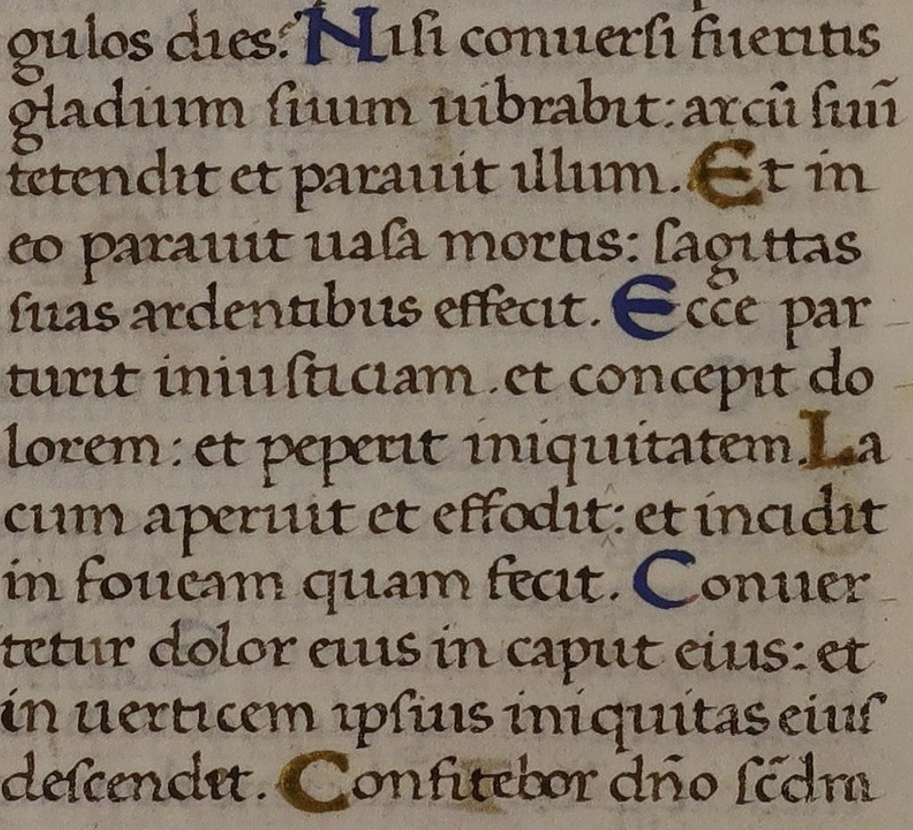 gulos dies: Niſi conuerſi fueritis
gladium ſuum uibrabit: arcū ſuū
tetendit et parauit illum. Et in
eo parauit uaſa mortis: ſagittas
ſuas ardentibus effecit. Ecce par
turit iniuſticiam . et concepit do
lorem: et peperit iniquitatem. La
cum aperuit et effodit: et incidit
in foueam quam fecit. Conuer
tetur dolor eius in caput eius: et
in uerticem ipſius iniquitas eiuſ
deſcendet. Confitebor dño ſc̄dm